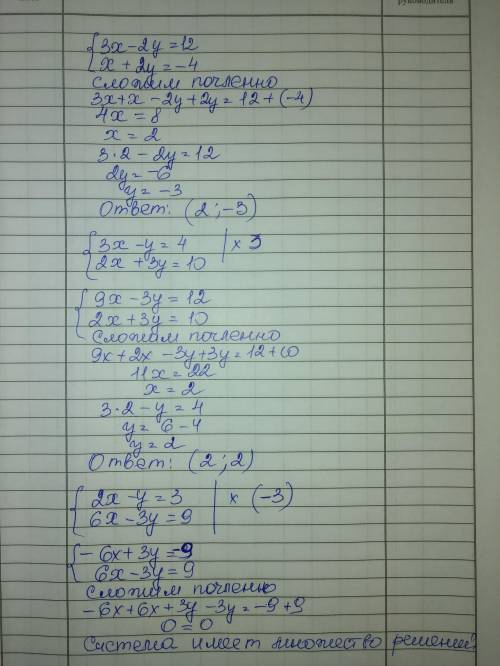 руководителя
3x-2y=12
x+2y=-4
Сложим почленно
3x+x-2y+2y=12+(-4)
4x=8
x=2
3·2-2y=12
2y=-6
y=-3
Ответ: (2;-3)
3x-y=4 | x 3
2x+3y=10
9x-3y=12
2x+3y=10
Сложим почленно
9x+2x-3y+3y=12+10
11x=22
x=2
3·2-y=4
y=6-4
y=2
Ответ: (2;2)
2x-y=3 | x (-3)
6x-3y=9
-6x+3y=-9
6x-3y=9
Сложим почленно
-6x+6x+3y-3y=-9+9
0=0
Система имеет множество решений